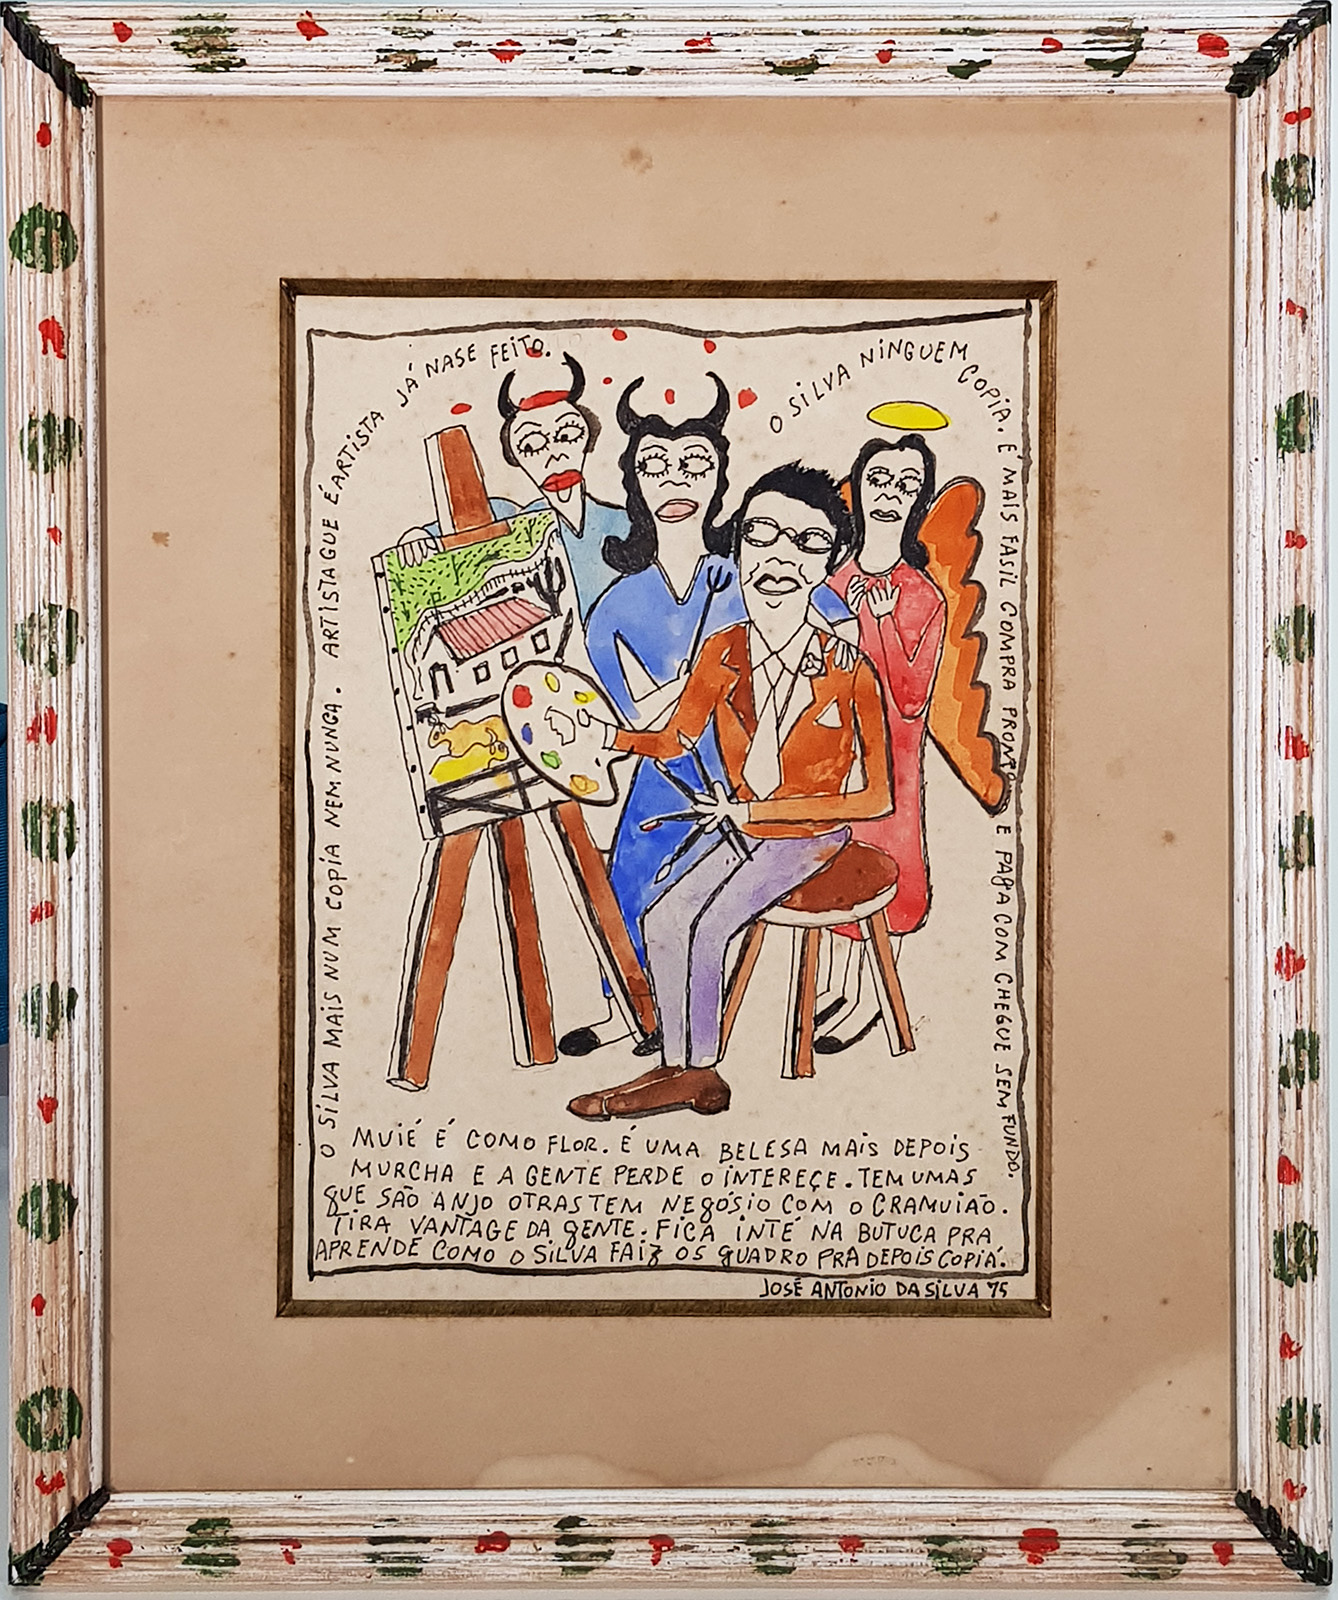 O SILVA MAIS NUM COPIA NEM NUNGA. ARTISTA QUE É ARTISTA JÁ NASE FEITO.
O SILVA NINGUEM COPIA. É MAIS FASIL COMPRA PRONTO E PAGA COM CHEGUE SEM FUNDO.
MUIÉ É COMO FLOR. É UMA BELESA MAIS DEPOIS
MURCHA E A GENTE PERDE O INTEREÇE. TEM UMAS
QUE SÃO ANJO OTRAS TEM NEGÓSIO COM O CRAMUIÃO.
TIRA VANTAGE DA GENTE. FICA INTÉ NA BUTUCA PRA
APRENDE COMO O SILVA FAIZ OS QUADRO PRA DEPOIS COPIÁ.
JOSÉ ANTONIO DA SILVA 75